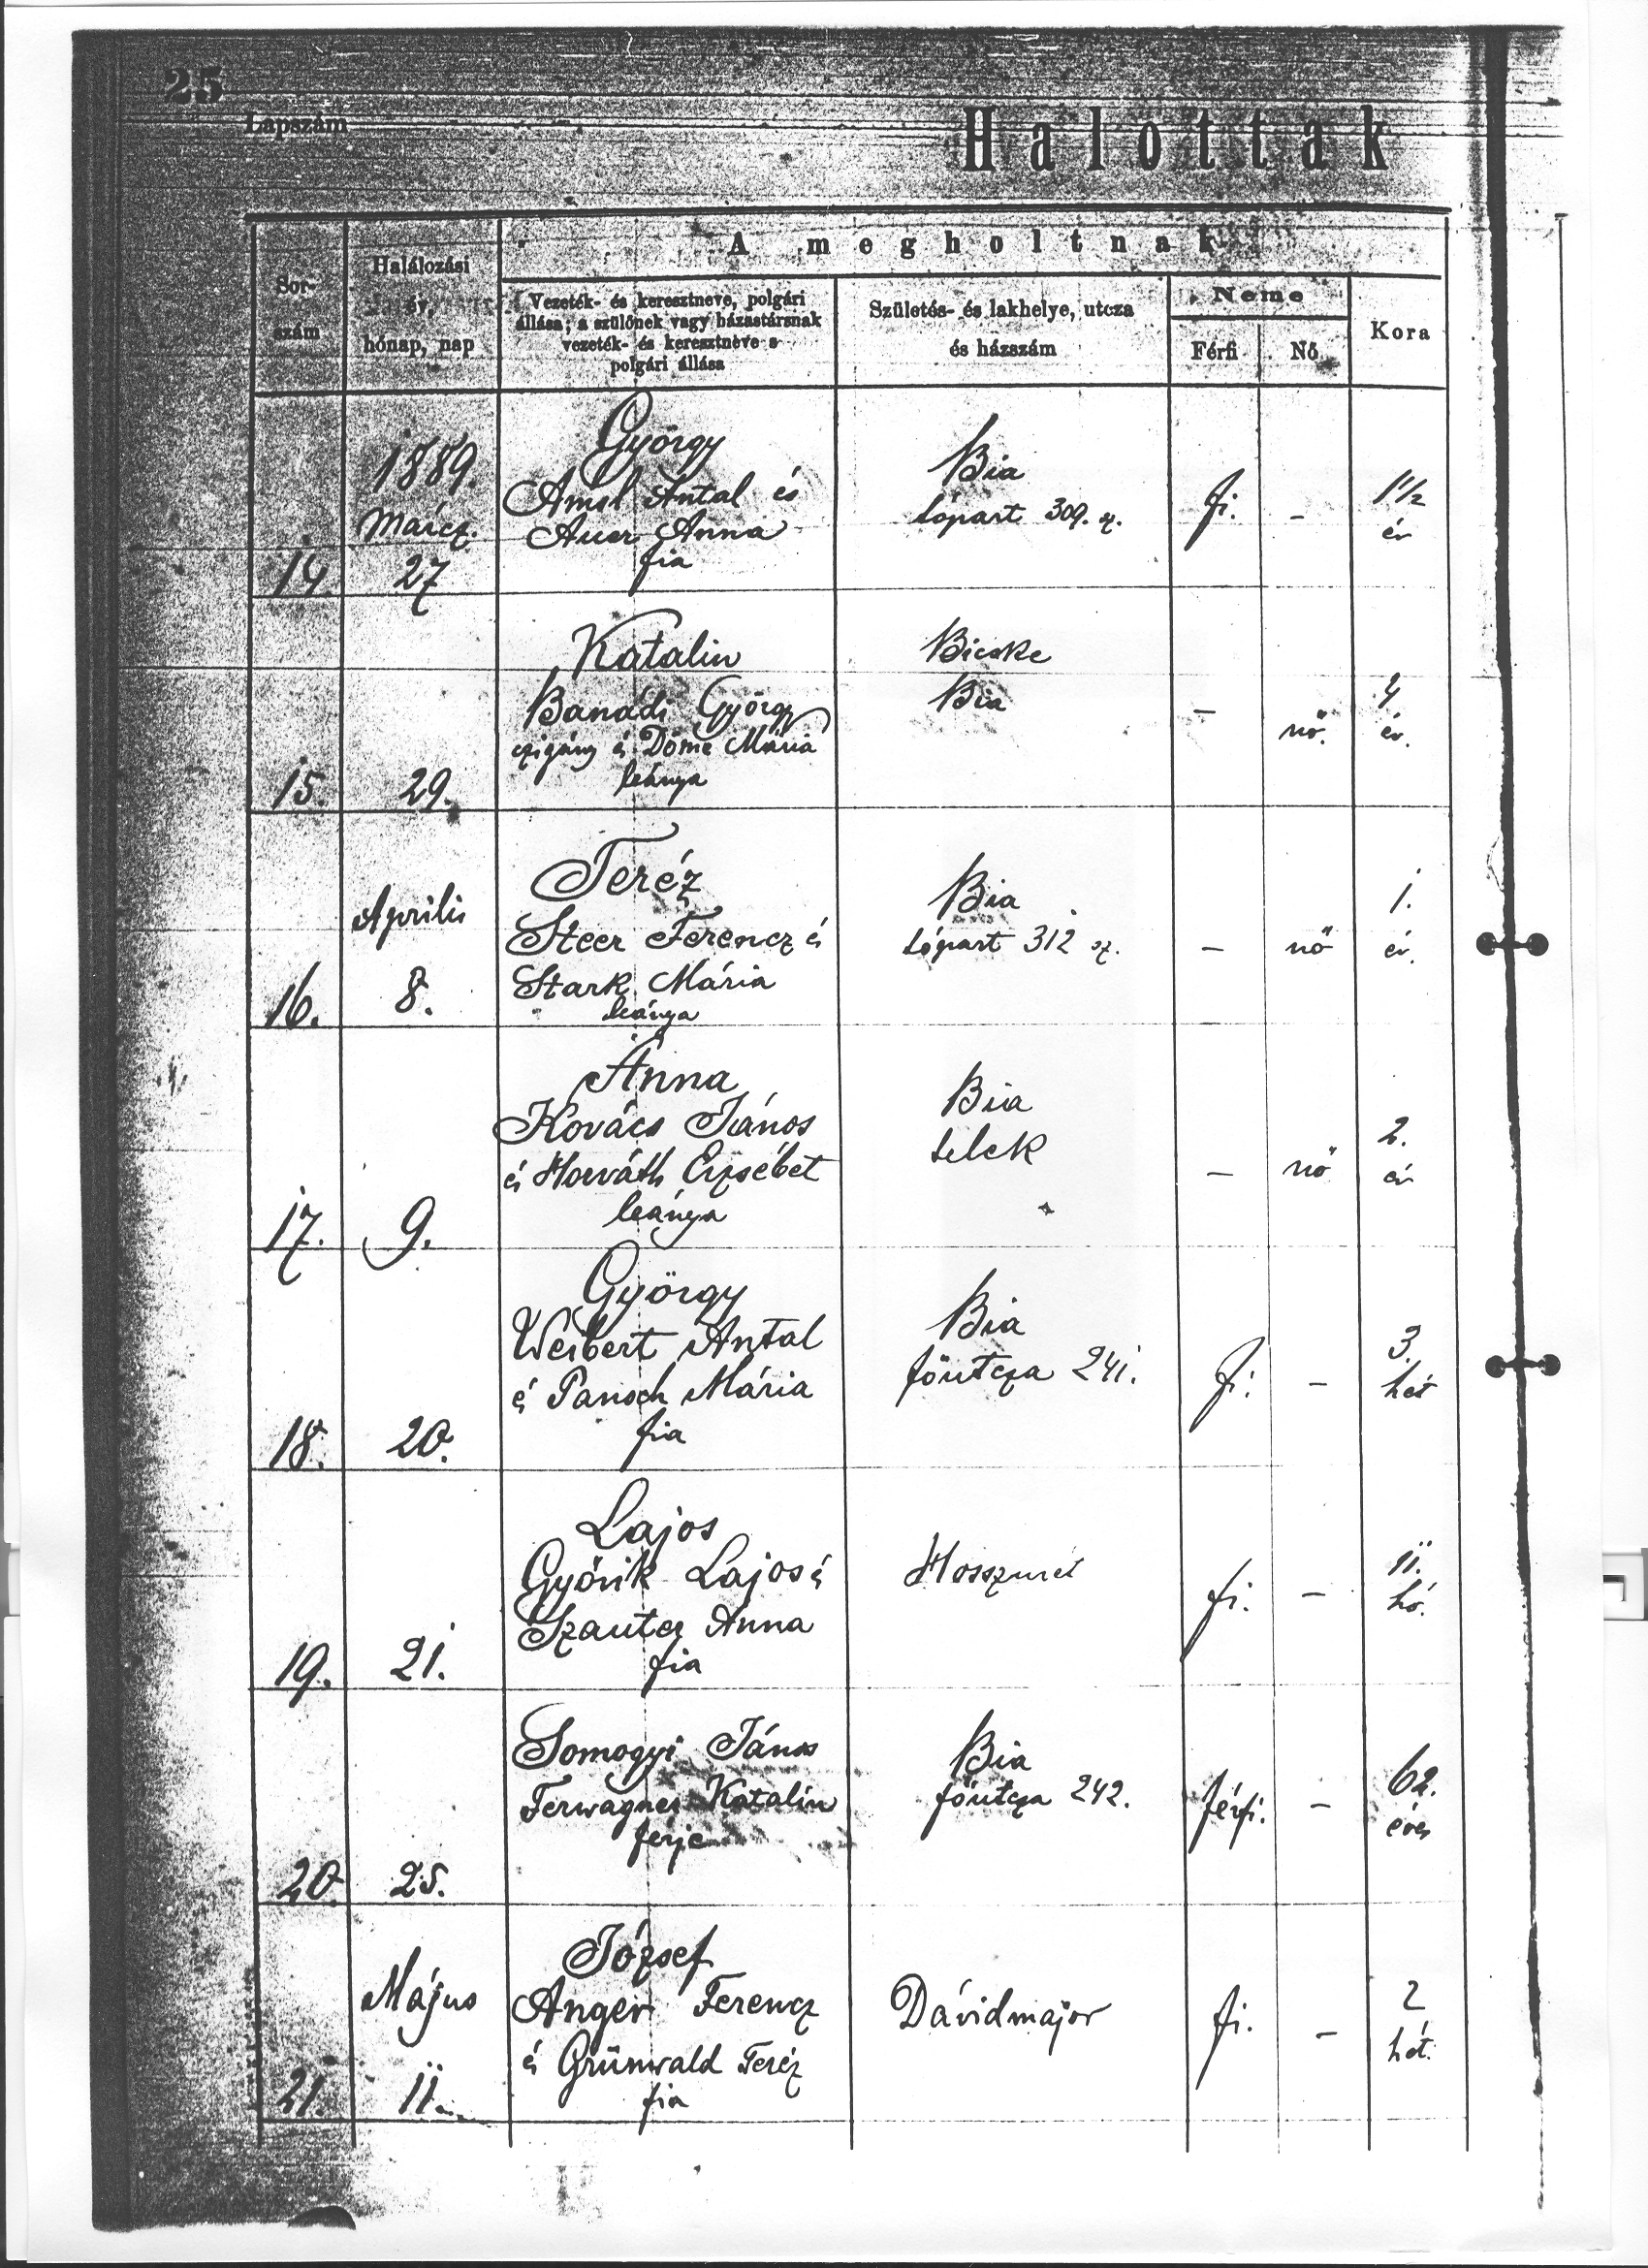 25
Lapszám
Halottak
A megholtnak
Sor-
szám
Halálozási
év,
hónap, nap
Vezeték- és keresztneve, polgári
állása; a szülőnek vagy házastársnak
vezeték- és keresztneve s
polgári állása
Születés- és lakhelye, utcza
és házszám
Neme
Férfi
Nő
Kora
14.
1889.
Márcz.
27
György
Amsl Antal és
Auer Anna
fia
Bia
Lópart 309. sz.
fi.
-
1 1/2
év
15.
29.
Katalin
Banádi György
czigány és Döme Mária
leánya
Bicske
Bia
-
nő.
4
év.
16.
Április
8.
Teréz
Steer Ferencz é
Stark Mária
leánya
Bia
Lópart 312 sz.
-
nő
1.
év.
17.
9.
Anna
Kovács János
é Horváth Erzsébet
leánya
Bia
telek
-
nő
2.
év
18.
20.
György
Weibert Antal
é Panoch Mária
fia
Bia
főutcza 241.
fi.
-
3.
hét
19.
21.
Lajos
Győrik Lajos é
Szauter Anna
fia
Hosszurét
fi.
-
11.
hó.
20
25.
Somogyi János
Ferwagner Katalin
férje
Bia
főutcza 242.
férfi.
-
62.
éves
21.
Május
11.
József
Anger Ferencz
é Grünwald Teréz
fia
Dávidmajor
fi.
-
2
hét.